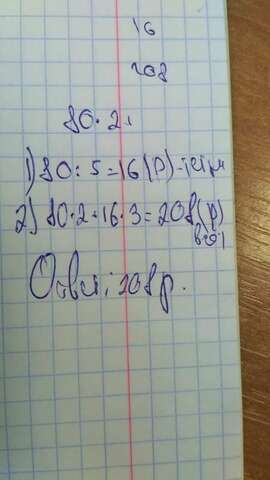 16
208
80·2+
1) 80:5=16(р)-тетр
2) 80·2+16·3=208(р)
всег
Ответ: 208 р.